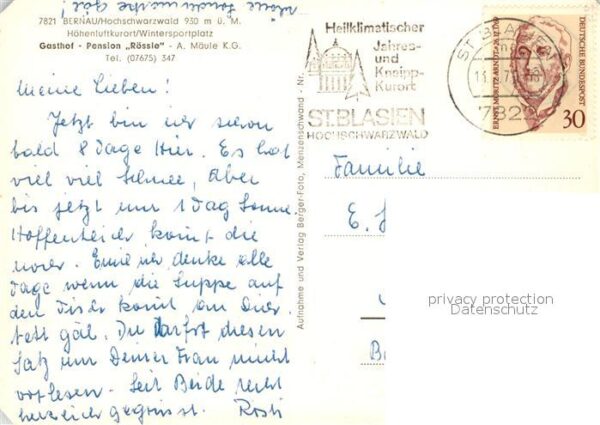 7821 BERNAU/Hochschwarzwald 930 m ü. M.
Höhenluftkurort/Wintersportplatz
Gasthof - Pension „Rössle" - A. Mäule K.G.
Tel. (07675) 347
Meine Lieben!
Jetzt bin ich schon
bald 8 Tage hier. Es hat
viel viel Schnee, Aber
bis jetzt nur 1 Tag Sonne.
Hoffentlich komt die
noch. Emil ich denke alle
Tage wenn die Suppe auf
den Tisch komt, an
gäl. Du darfst diesen
Satz nur Deiner Frau nicht
vorlesen. Seit Beide recht
herzlich gegrüsst. Rosti
Aufnahme und Verlag Berger-Foto, Menzenschwand - Nr.
Heilklimatischer
Jahres-
und
Kneipp-
Kurort
ST. BLASIEN
HOCHSCHWARZWALD
ST BLASIEN
7822
ERNST MORITZ ARNDT
DEUTSCHE BUNDESPOST
30
Familie
E.
privacy protection
Datenschutz